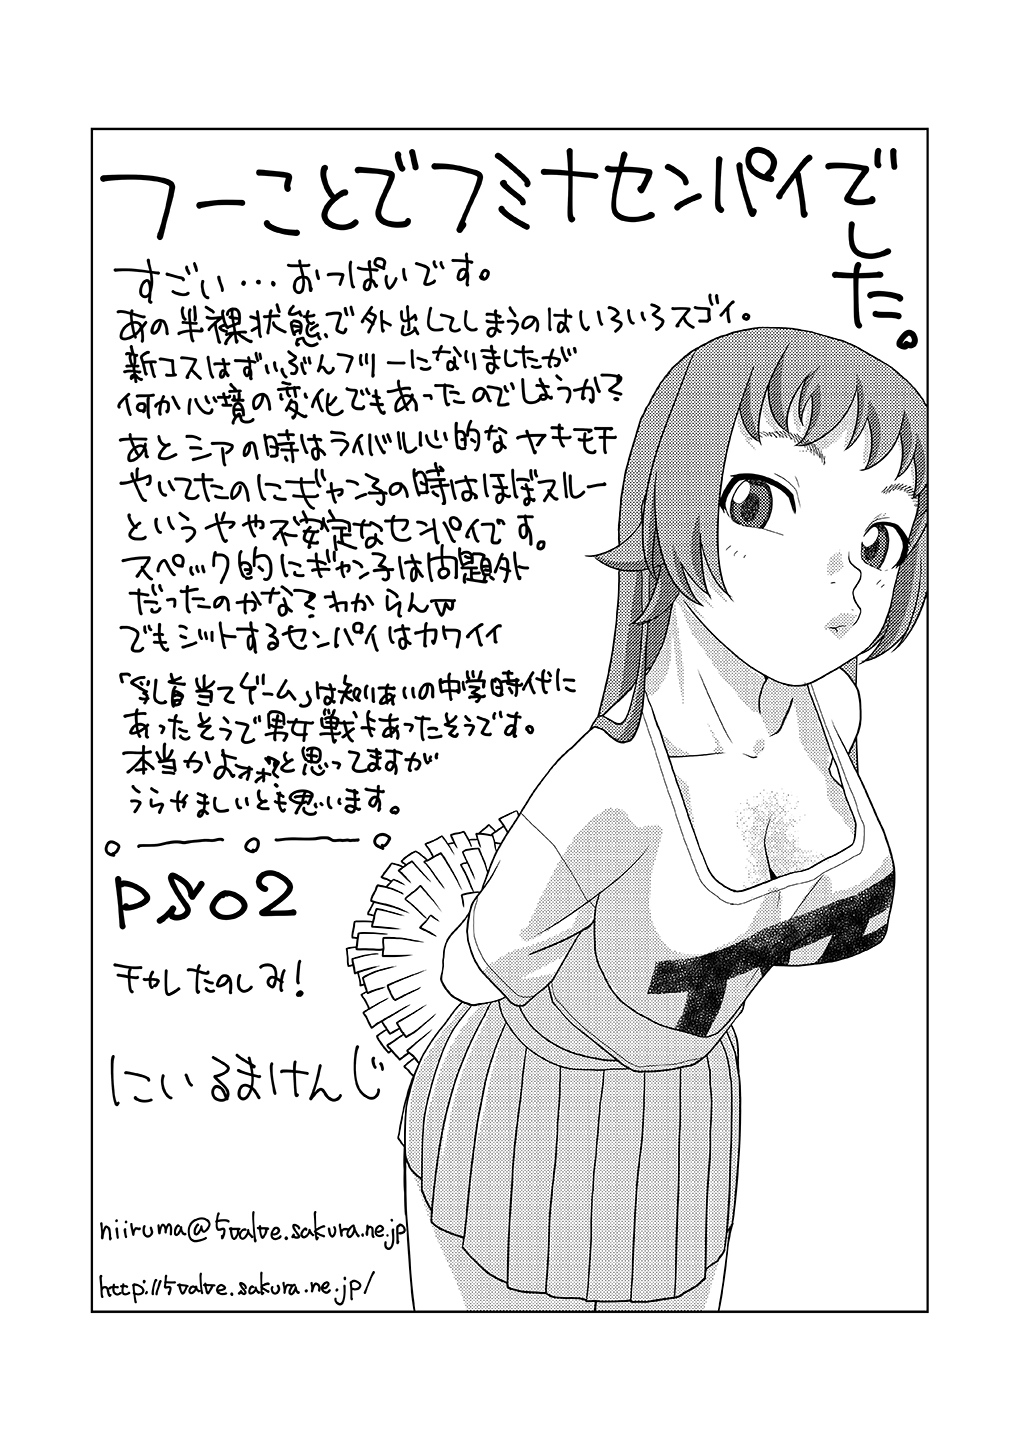 フーことでフミナセンパイでした。
すごい…おっぱいです。
あの半裸状態で外出してしまうのはいろいろスゴイ。
新コスはずいぶんフツーになりましたが
何か心境の変化でもあったのでしょうか?
あとシアの時はライバル心的なヤキモチ
やいてたのにギャン子の時はほぼスルー
というやや不安定なセンパイです。
スペック的にギャン子は問題外
だったのかな?わからんw
でもジットするセンパイはカワイイ
「乳首当てゲーム」は知りあいの中学時代に
あったそうで男女戦もあったそうです。
本当かよォォ?と思ってますが
うらやましいとも思います。
PSO2
チカレたのしみ!
にいるまけんじ
niiruma@5valve.sakura.ne.jp
http://5valve.sakura.ne.jp/